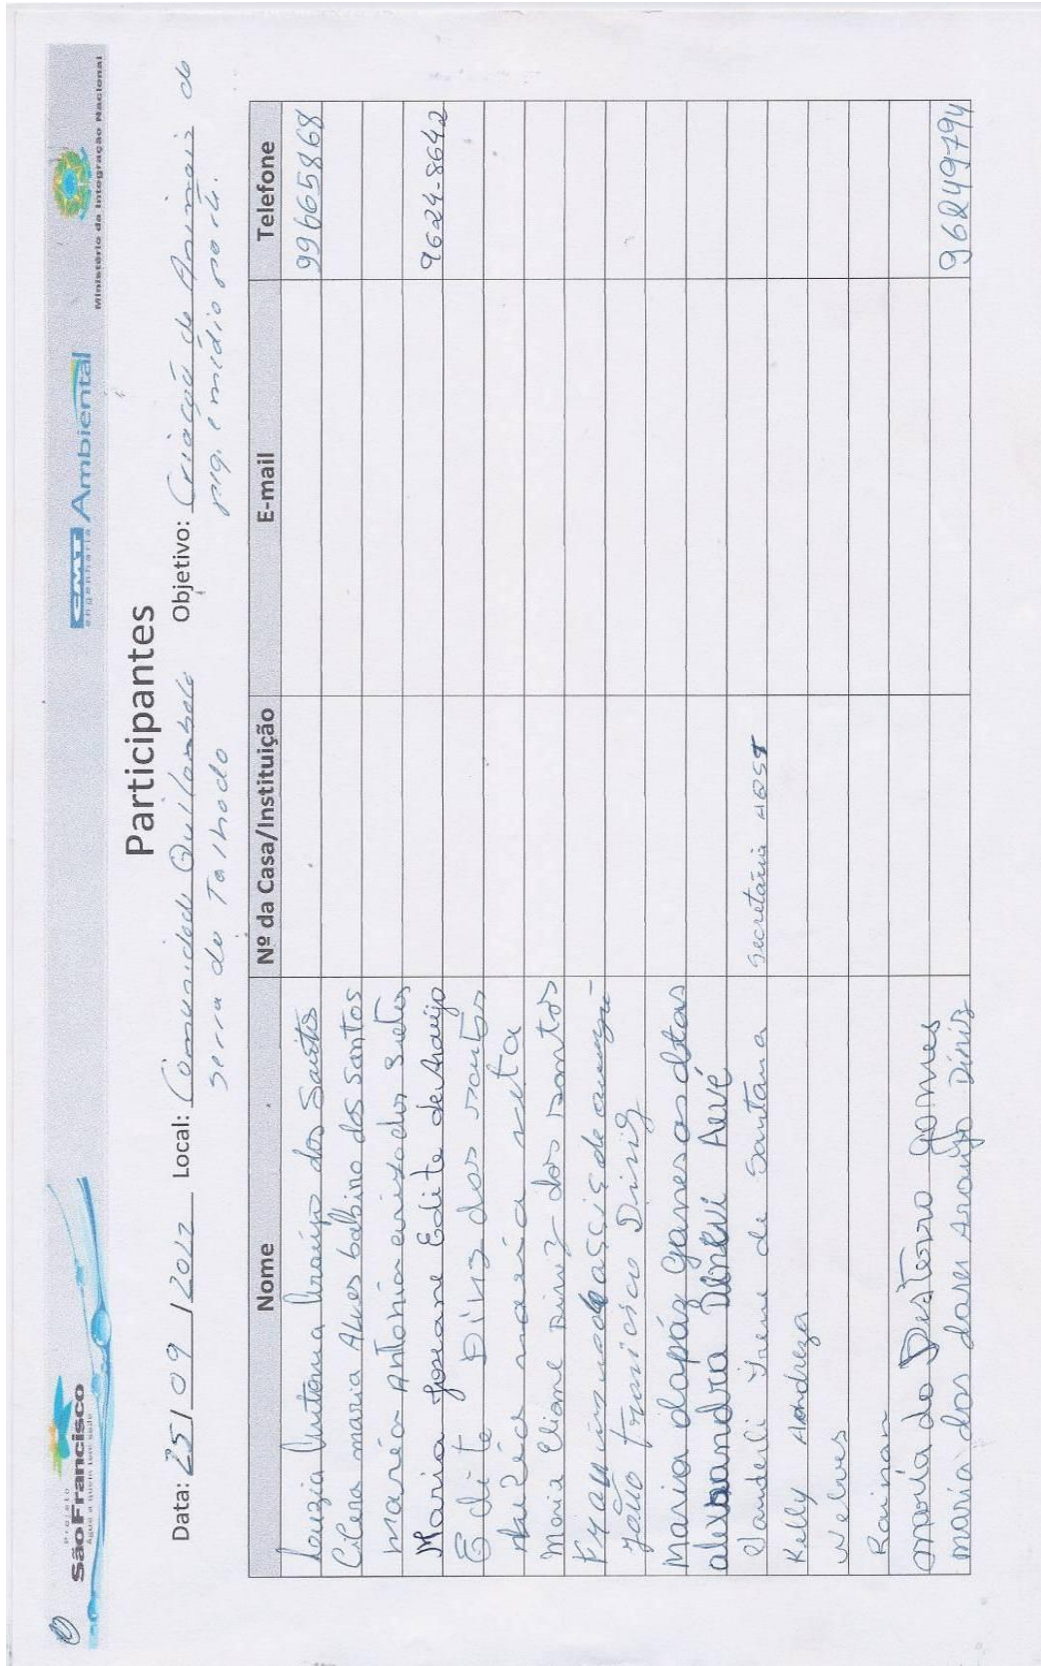 Projeto
São Francisco
Água a quem tem sede
CMT Ambiental
engenharia
Ministério da Integração Nacional
Participantes
Data: 25/09/2012 Local: Comunidade Quilombola Objetivo: Criação de Animais de
Serra do Talhado peq. e médio porte.
Nome Nº da Casa/Instituição E-mail Telefone
Louzia Antonia Araújo dos Santos 99665868
Cilera maria Alves balbino dos Santos
maria Antonia dos
Maria Josiane Edite de Araújo 9624-8642
Edite Diniz dos santos
maria neta
Maria Eliane Diniz dos santos
de assis de
joão francisco Diniz
Maria dapáz
alexandra
Vanderli Irene de Santana Secretária
Kelly Andreza
Nelves
Rainan
maria do Desterro gomes
maria das dores Araújo Diniz 96249794